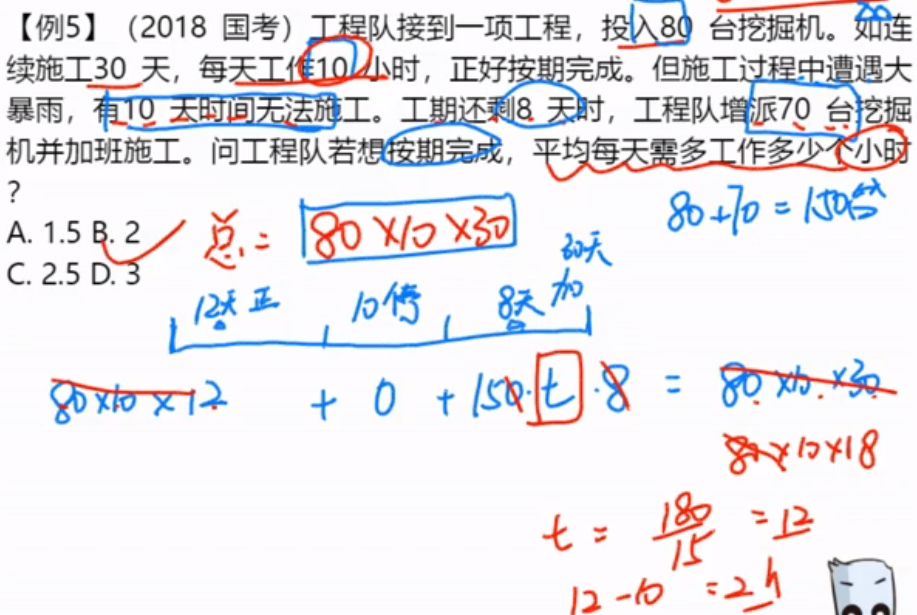 【例5】（2018 国考）工程队接到一项工程，投入80 台挖掘机。如连
续施工30 天，每天工作10 小时，正好按期完成。但施工过程中遭遇大
暴雨，有10 天时间无法施工。工期还剩8 天时，工程队增派70 台挖掘
机并加班施工。问工程队若想按期完成，平均每天需多工作多少个小时
？
80+70=150台
A. 1.5 B. 2
总:= 80×10×30
C. 2.5 D. 3
30天
12天正 10停 8天加
80×10×12 + 0 + 150·t·8 = 80×10×30
80×10×18
t = 180/15 = 12
12-10 = 2h